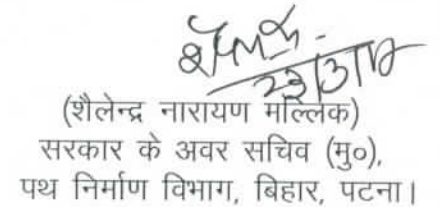 (शैलेन्द्र नारायण मल्लिक)
सरकार के अवर सचिव (मु०),
पथ निर्माण विभाग, बिहार, पटना।